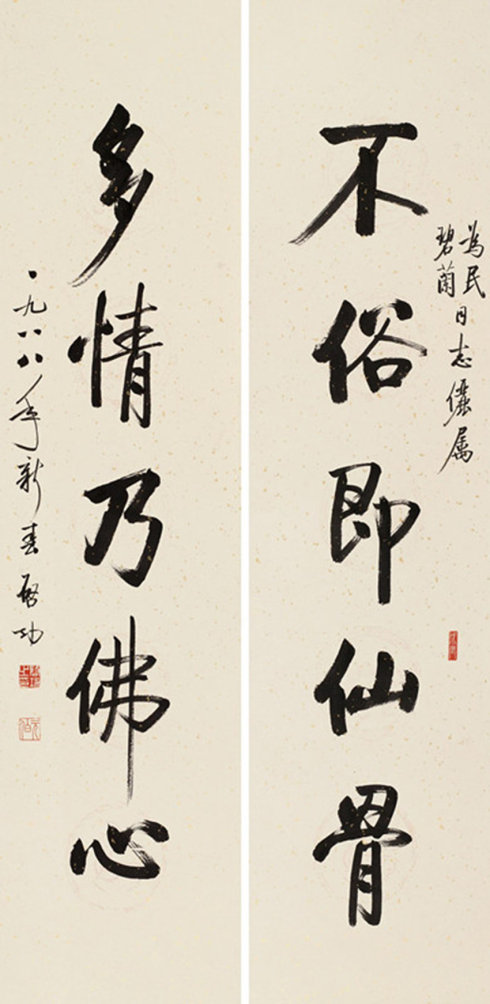 不俗即仙骨
为民
碧蘭同志儷属
多情乃佛心
一九八八年新春启功